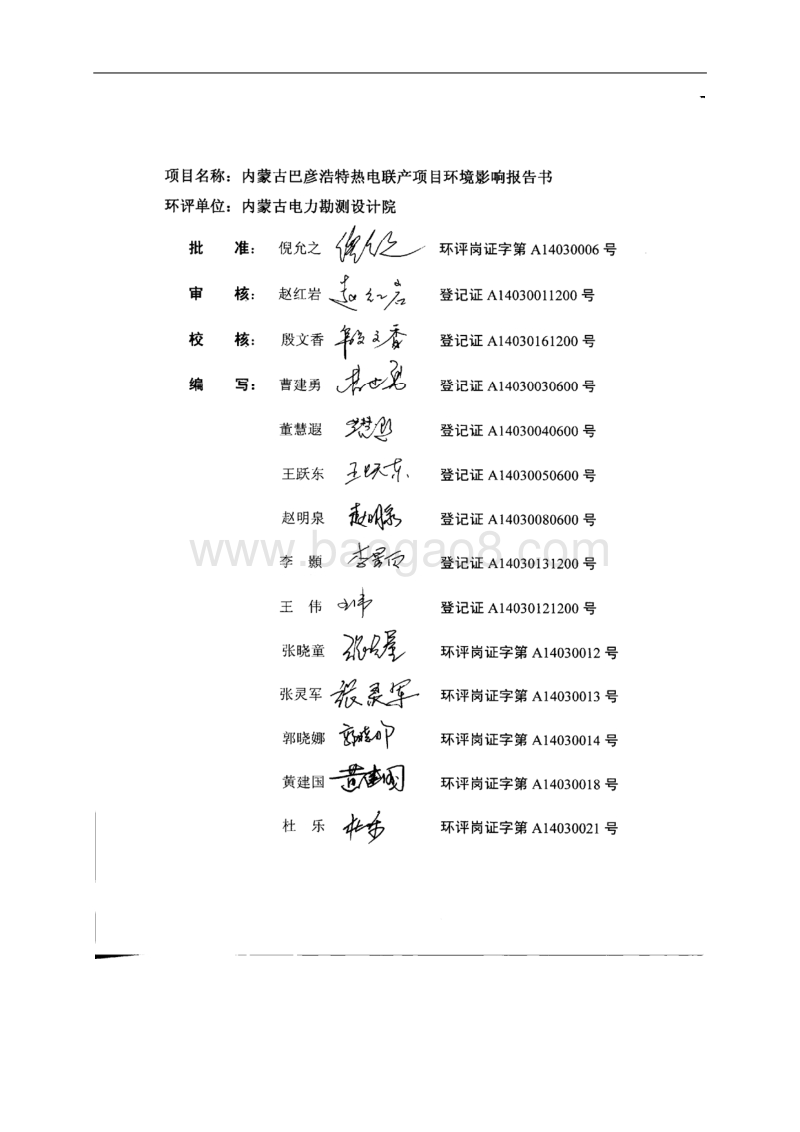 项目名称：内蒙古巴彦浩特热电联产项目环境影响报告书
环评单位：内蒙古电力勘测设计院
批 准： 倪允之 倪允之 环评岗证字第 A14030006 号
审 核： 赵红岩 赵红岩 登记证 A14030011200 号
校 核： 殷文香 殷文香 登记证 A14030161200 号
编 写： 曹建勇 登记证 A14030030600 号
董慧遐 登记证 A14030040600 号
王跃东 王跃东 登记证 A14030050600 号
赵明泉 赵明泉 登记证 A14030080600 号
李 颢 登记证 A14030131200 号
王 伟 王伟 登记证 A14030121200 号
张晓童 张晓童 环评岗证字第 A14030012 号
张灵军 张灵军 环评岗证字第 A14030013 号
郭晓娜 郭晓娜 环评岗证字第 A14030014 号
黄建国 黄建国 环评岗证字第 A14030018 号
杜 乐 杜乐 环评岗证字第 A14030021 号
www.baogao8.com